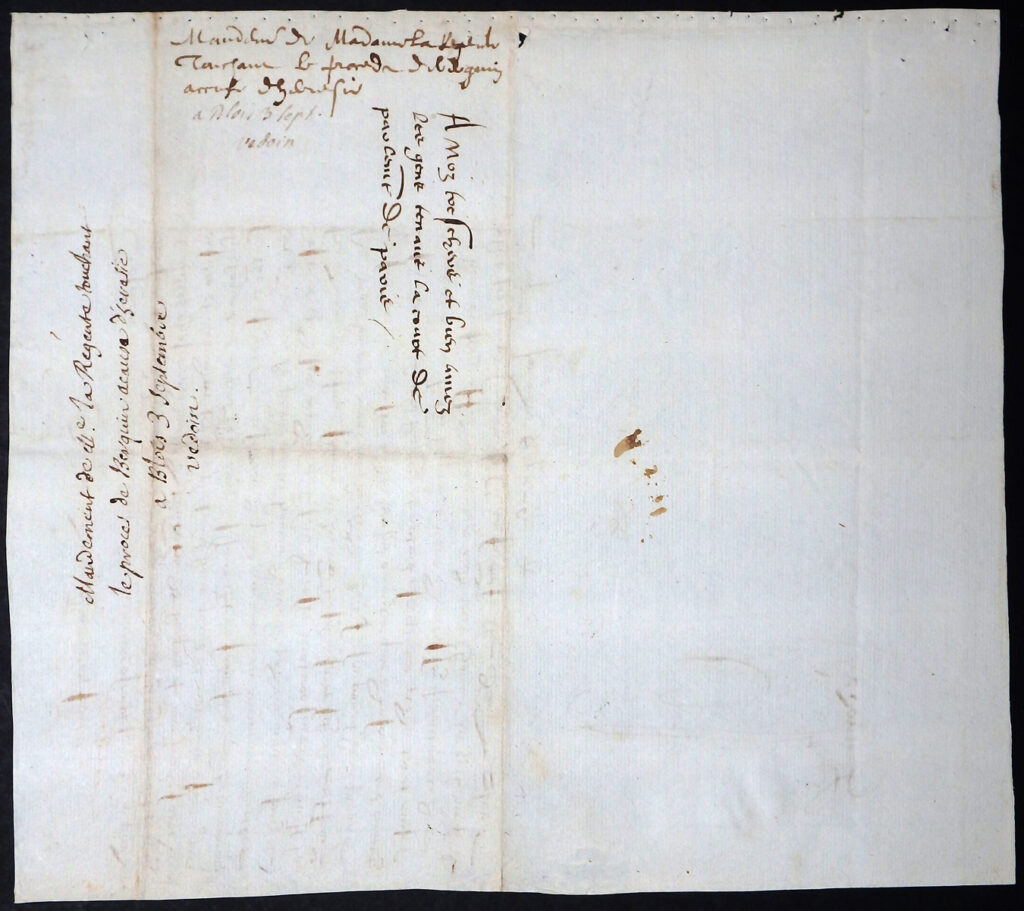 Mandemt de Madame la Regente
Touchant le procedz de Berquin
accuse dheresie
a Blois 3 sept.
vedoin
A Noz treschers et bien amez
les gens tenans la court de
parlemt de paris
Mandement de Me. la Regente touchant
le procez de Berquin acause d'heresie
a Blois 3 Septembre
vedoin.